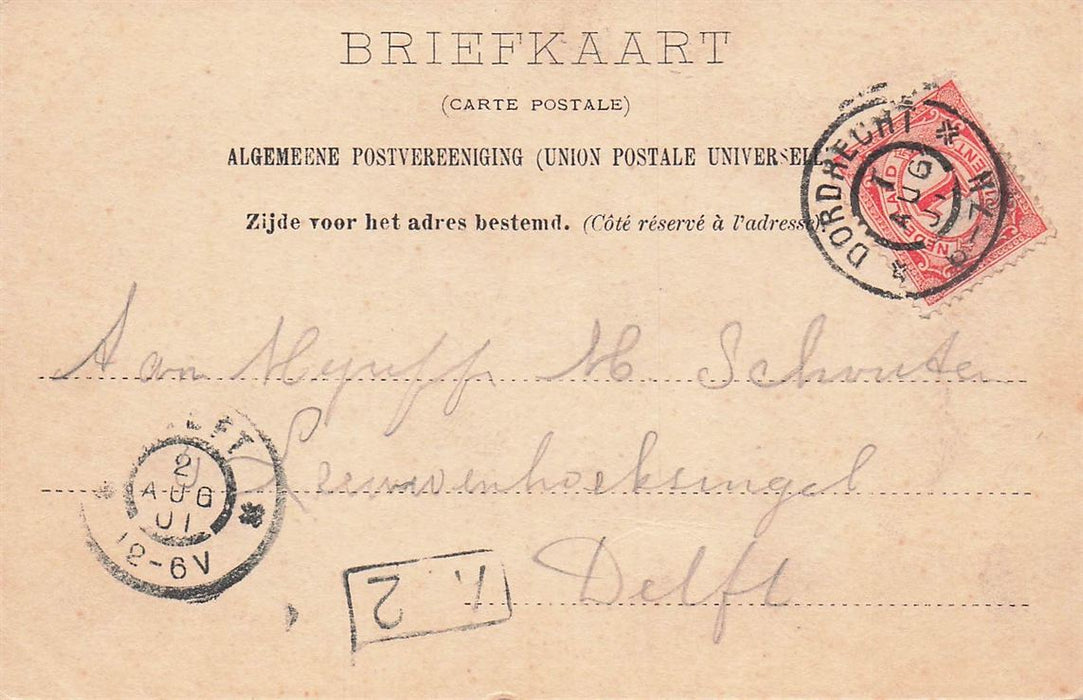 BRIEFKAART
(CARTE POSTALE)
ALGEMEENE POSTVEREENIGING (UNION POSTALE UNIVERSELLE
Zijde voor het adres bestemd. (Côté réservé à l'adresse)
DORDRECHT
1 AUG 01
6-7 N
NEDERLAND
1
CENT
Aan Mejuff M Schouten
Leeuwenhoeksingel
Delft
DELFT
2
AUG
01
12-6V
2